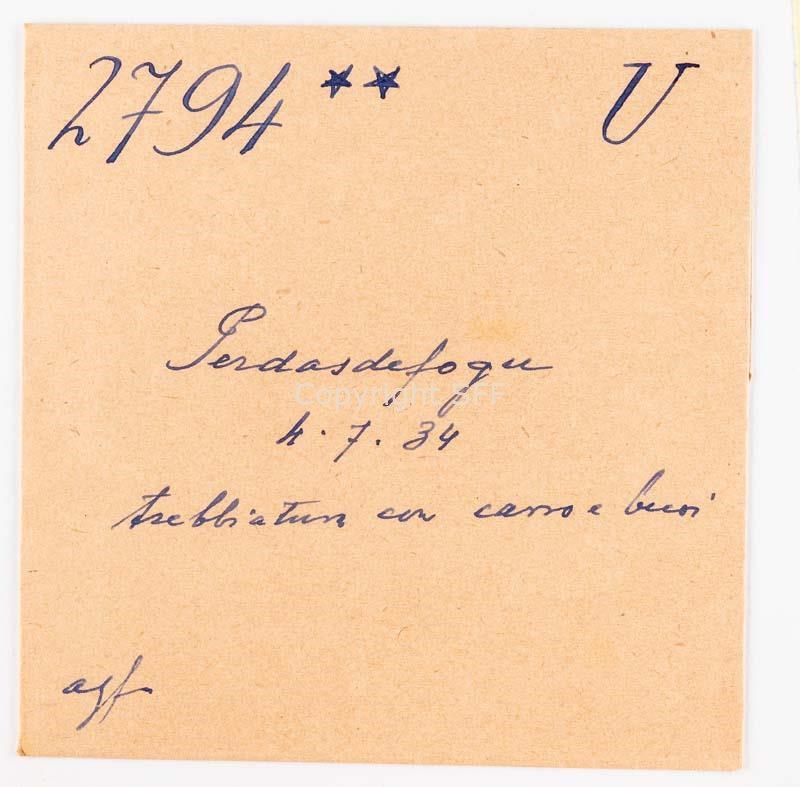 2794 ** U
Perdasdefogu
Copyright SFF
4.7.34
trebbiatura con carro e buoi
agf